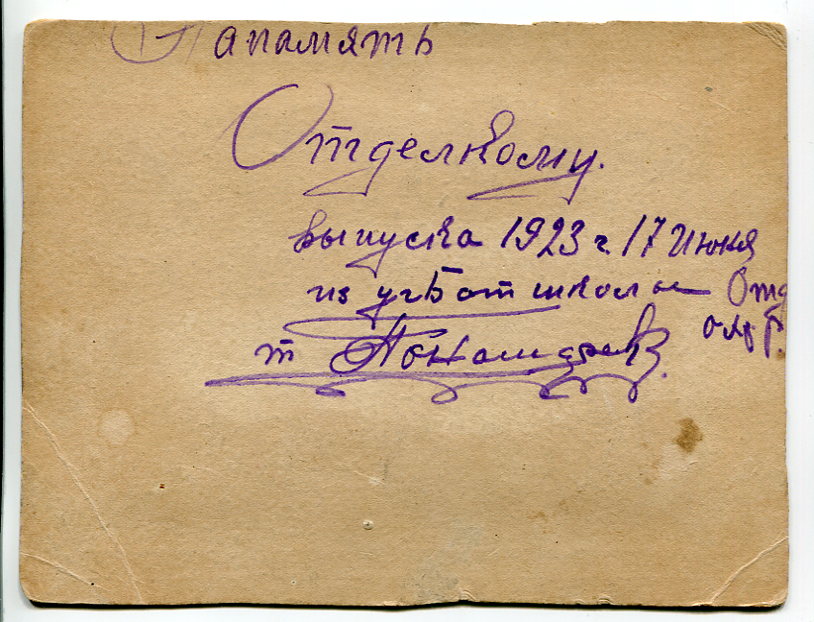 На память
Отделкому.
выпуска 1923 г. 17 Июня
из учБат школы Отд
т Пономарев